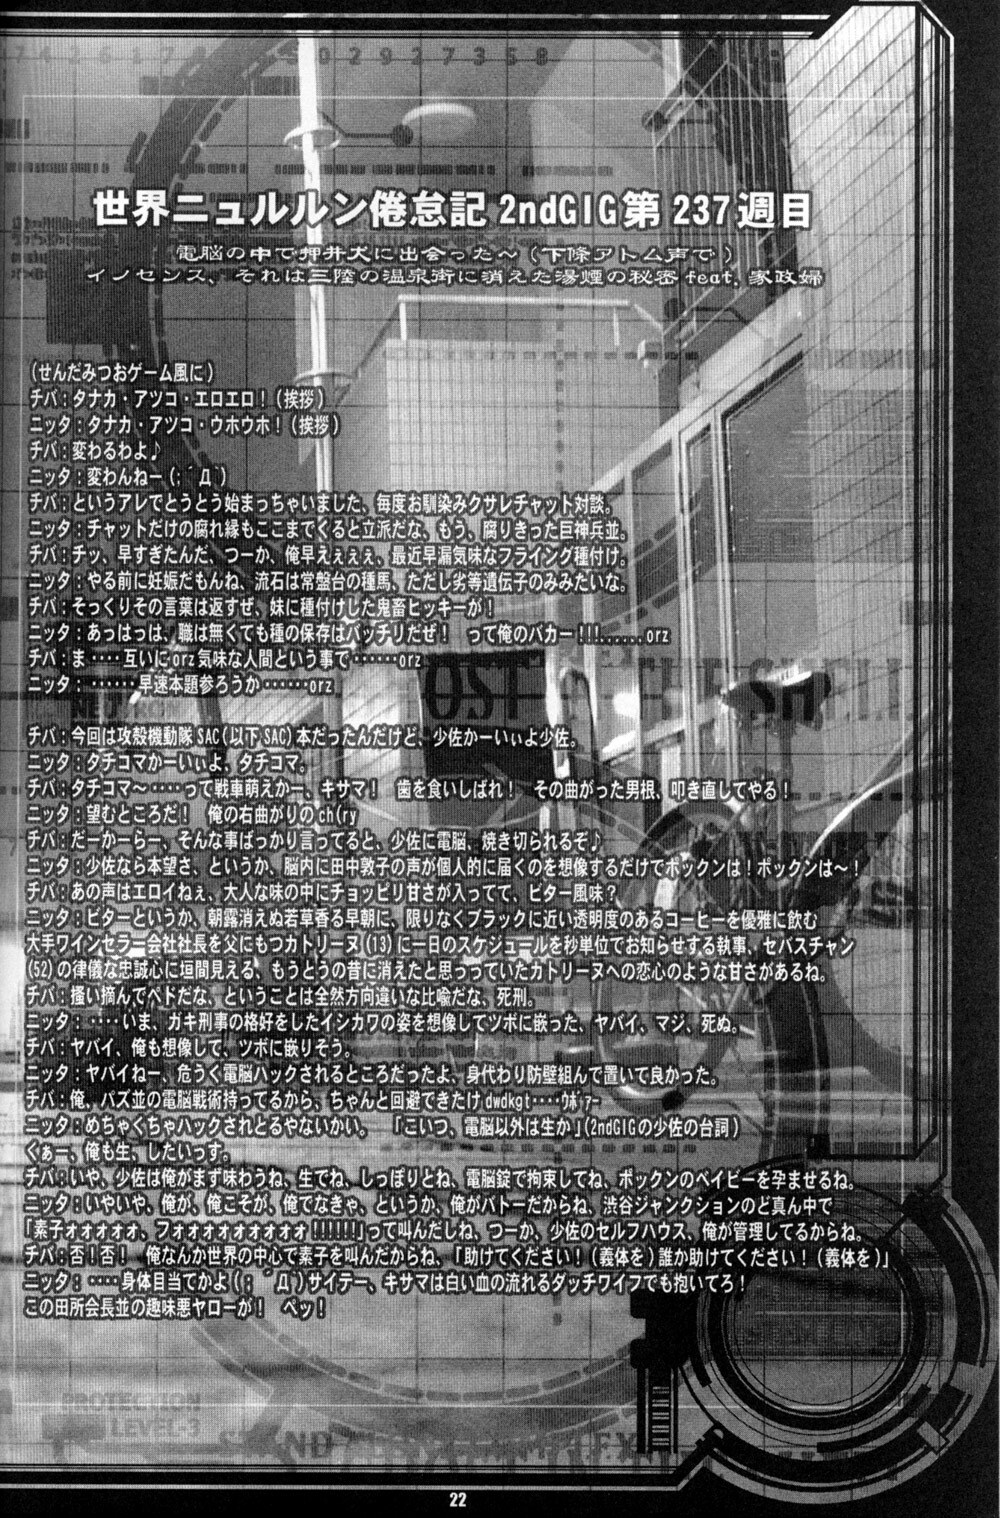 世界ニュルルン倦怠記 2ndGIG第 237週目
電脳の中で押井犬に出会った～（下條アトム声で）
イノセンス、それは三陸の温泉街に消えた湯煙の秘密 feat. 家政婦
（せんだみつおゲーム風に）
チバ：タナカ・アツコ・エロエロ！（挨拶）
ニッタ：タナカ・アツコ・ウホウホ！（挨拶）
チバ：変わるわよ♪
ニッタ：変わんねー(；´Д`)
チバ：というアレでとうとう始まっちゃいました、毎度お馴染みクサレチャット対談。
ニッタ：チャットだけの腐れ縁もここまでくると立派だな、もう、腐りきった巨神兵並。
チバ：チッ、早すぎたんだ、つーか、俺早えぇぇぇ、最近早漏気味なフライング種付け。
ニッタ：やる前に妊娠だもんね、流石は常盤台の種馬、ただし劣等遺伝子のみみたいな。
チバ：そっくりその言葉は返すぜ、妹に種付けした鬼畜ヒッキーが！
ニッタ：あっはっは、職は無くても種の保存はバッチリだぜ！　って俺のバカー!!!......orz
チバ：ま‥‥互いにorz気味な人間という事で‥‥‥orz
ニッタ：‥‥‥早速本題参ろうか‥‥‥orz
チバ：今回は攻殻機動隊SAC(以下SAC)本だったんだけど、少佐かーいぃよ少佐。
ニッタ：タチコマかーいぃよ、タチコマ。
チバ：タチコマ～‥‥って戦車萌えかー、キサマ！　歯を食いしばれ！　その曲がった男根、叩き直してやる！
ニッタ：望むところだ！　俺の右曲がりのch(ry
チバ：だーかーらー、そんな事ばっかり言ってると、少佐に電脳、焼き切られるぞ♪
ニッタ：少佐なら本望さ、というか、脳内に田中敦子の声が個人的に届くのを想像するだけでボックンは！ボックンは～！
チバ：あの声はエロイねぇ、大人な味の中にチョッピリ甘さが入ってて、ビター風味？
ニッタ：ビターというか、朝露消えぬ若草香る早朝に、限りなくブラックに近い透明度のあるコーヒーを優雅に飲む
大手ワインセラー会社社長を父にもつカトリーヌ(13)に一日のスケジュールを秒単位でお知らせする執事、セバスチャン
(52)の律儀な忠誠心に垣間見える、もうとうの昔に消えたと思っっていたカトリーヌへの恋心のような甘さがあるね。
チバ：掻い摘んでペドだな、ということは全然方向違いな比喩だな、死刑。
ニッタ：‥‥いま、ガキ刑事の格好をしたイシカワの姿を想像してツボに嵌った、ヤバイ、マジ、死ぬ。
チバ：ヤバイ、俺も想像して、ツボに嵌りそう。
ニッタ：ヤバイねー、危うく電脳ハックされるところだったよ、身代わり防壁組んで置いて良かった。
チバ：俺、パズ並の電脳戦術持ってるから、ちゃんと回避できたけdwdkgt‥‥ｳﾎﾞｧｰ
ニッタ：めちゃくちゃハックされとるやないかい。　「こいつ、電脳以外は生か」(2ndGIGの少佐の台詞)
くぁー、俺も生、したいっす。
チバ：いや、少佐は俺がまず味わうね、生でね、しっぽりとね、電脳錠で拘束してね、ボックンのベイビーを孕ませるね。
ニッタ：いやいや、俺が、俺こそが、俺でなきゃ、というか、俺がバトーだからね、渋谷ジャンクションのど真ん中で
「素子ォォォォォ、フォォォォォォォォォ!!!!!!」って叫んだしね、つーか、少佐のセルフハウス、俺が管理してるからね。
チバ：否！否！　俺なんか世界の中心で素子を叫んだからね、「助けてください！(義体を)誰か助けてください！(義体を)」
ニッタ：‥‥身体目当てかよ(；´Д`)サイテー、キサマは白い血の流れるダッチワイフでも抱いてろ！
この田所会長並の趣味悪ヤローが！　ペッ！
PROTECTION
LEVEL-3
22